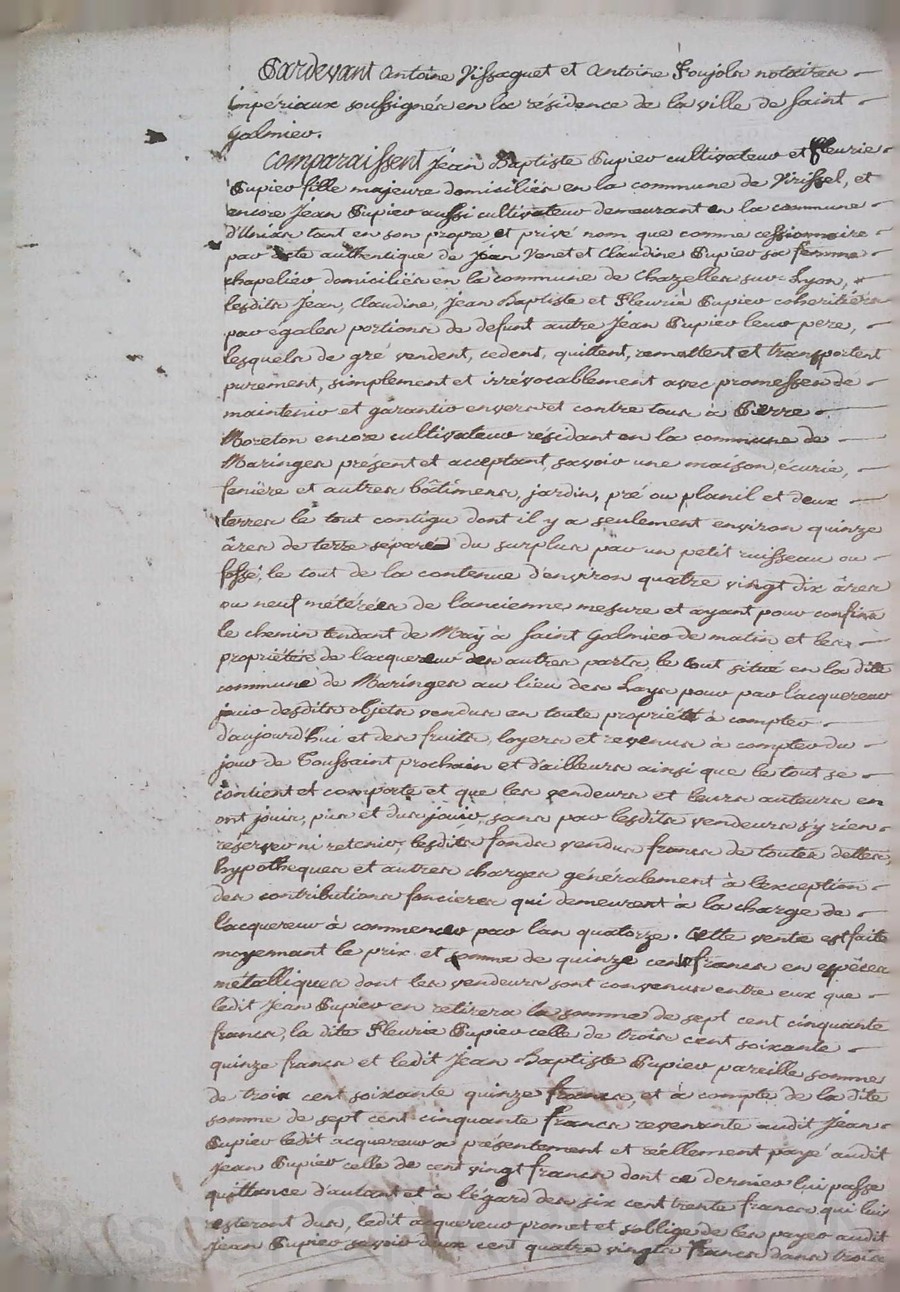 Pardevant Antoine Vissaguet et Antoine Poujols notaires
impériaux soussignés en la résidence de la ville de Saint
Galmier.
Comparaissent Jean Baptiste Pupier cultivateur et Fleurie
Pupier fille majeure domiciliés en la commune de Virissel, et
encore Jean Pupier aussi cultivateur demeurant en la commune
d'Unian tant en son propre et privé nom que comme cessionnaire
par acte authentique de Jean Venet et Claudine Pupier sa femme
chapelier domiciliés en la commune de Chazelles sur Lyon,
lesdits Jean, Claudine, Jean Baptiste et Fleurie Pupier cohéritiers
par égales portions de defunt autre Jean Pupier leur pere,
lesquels de gré vendent, cedent, quittent, remettent et transportent
purement, simplement et irrévocablement avec promesses de
maintenir et garantir envers et contre tous à Pierre
Moreton encore cultivateur résidant en la commune de
Maringes présent et acceptant, savoir une maison, écurie,
fenière et autres bâtimens, jardin, pré ou planil et deux
terres le tout contigu dont il y a seulement environ quinze
âres de terre séparés du surplus par un petit ruisseau ou
fossé, le tout de la contenue d'environ quatre vingt dix âres
ou neuf métérées de l'ancienne mesure et ayant pour confins
le chemin tendant de à Saint Galmier de matin et les
propriétés de l'acquereur des autres parts, le tout situé en la dite
commune de Maringes au lieu des Lays pour par l'acquereur
jouir desdits objets vendus en toute propriété à compter
d'aujourd'hui et des fruits, loyers et revenus à compter du
jour de Toussaint prochain et d'ailleurs ainsi que le tout se
contient et comporte et que les vendeurs et leurs auteurs en
ont joui, pu et du jouir, sans par lesdits vendeurs s'y rien
réserver ni retenir, lesdits fonds vendus francs de toutes dettes,
hypotheques et autres charges généralement à l'exception
des contributions foncieres qui demeurent à la charge de
l'acquereur à commencer par l'an quatorze. Cette vente est faite
moyennant le prix et somme de quinze cent francs en espèces
métalliques dont les vendeurs sont convenus entre eux que
ledit Jean Pupier en retirera la somme de sept cent cinquante
francs, la dite Fleurie Pupier celle de trois cent soixante
quinze francs et ledit Jean Baptiste Pupier pareille somme
de trois cent soixante quinze francs, et à compte de la dite
somme de sept cent cinquante francs revenante audit Jean
Pupier ledit acquereur a présentement et réellement payé audit
Jean Pupier celle de cent vingt francs dont ce dernier lui passe
quittance d'autant et à l'égard des six cent trente francs qui lui
resteront dus, ledit acquereur promet et s'oblige de les payer audit
Jean Pupier savoir deux cent quatre vingts francs dans trois